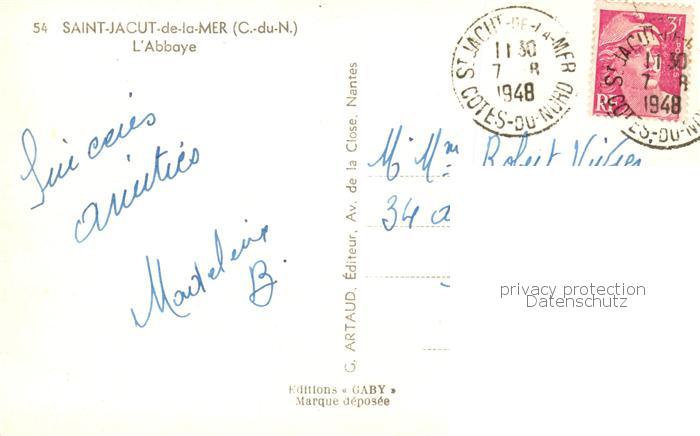 54 SAINT-JACUT-de-la-MER (C.-du-N.)
L'Abbaye
Sincères
amitiés
Madeleine
B.
G. ARTAUD, Éditeur, Av. de la Close, Nantes
Editions « GABY »
Marque déposée
ST JACUT-DE-LA-MER
11 30
7 8
1948
COTES-DU-NORD
3f
RF
ST JACUT-DE-LA
11 30
7 8
1948
COTES-DU-NORD
M. Mme Robert
34
privacy protection
Datenschutz